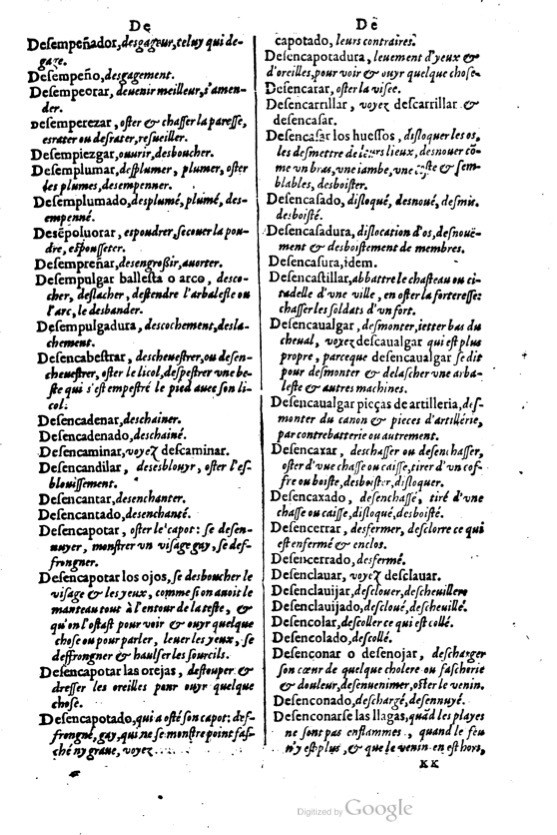 De
Desempeñador, desgageur, celuy qui de-
gaze.
Desempeño, desgagement.
Desempeorar, deuenir meilleur, s'amen-
der.
Desemperezar, oster & chasser la paresse,
esrater ou desrater, resueiller.
Desempiezgar, ouurir, desboucher.
Desemplumar, desplumer, plumer, oster
les plumes, desempenner.
Desemplumado, desplumé, plumé, des-
empenné.
Desēpoluorar, espoudrer, secouer la pou-
dre, espousseter.
Desempreñar, desengroßir, auorter.
Desempulgar ballesta o arco, desco-
cher, deslacher, destendre l'arbaleste ou
l'arc, le desbander.
Desempulgadura, descochement, desla-
chement.
Desencabestrar, descheuestrer, ou desen-
cheuestrer, oster le licol, despestrer vne be-
ste qui s'est empestré le pied auec son li-
col.
Desencadenar, deschainer.
Desencadenado, deschainé.
Desencaminar, voyez descaminar.
Desencandilar, desesblouyr, oster l'es-
blouissement.
Desencantar, desenchanter.
Desencantado, desenchanté.
Desencapotar, oster le capot: se desen-
nuyer, monstrer vn visage gay, se des-
frongner.
Desencapotar los ojos, se desboucher le
visage & les yeux, comme si on auoit le
manteau tout à l'entour de la teste, &
qu'on l'ostast pour voir & ouyr quelque
chose ou pour parler, leuer les yeux, se
deffrongner & haulser les sourcils.
Desencapotar las orejas, destouper &
dresser les oreilles pour ouyr quelque
chose.
Desencapotado, qui a osté son capot: des-
frongné, gay, qui ne se monstre point fas-
ché ny graue, voyez
De
capotado, leurs contraires.
Desencapotadura, leuement d'yeux &
d'oreilles, pour voir & ouyr quelque chose.
Desencarar, oster la visee.
Desencarrillar, voyez descarrillar &
desencasar.
Desencasar los huessos, disloquer les os,
les desmettre de leurs lieux, desnouer cō-
me vn bras, vne iambe, vne coste & sem-
blables, desboister.
Desencasado, disloqué, desnoué, desmis.
desboisté.
Desencasadura, dislocation d'os, desnouë-
ment & desboistement de membres.
Desencasura, idem.
Desencastillar, abbattre le chasteau ou ci-
tadelle d'vne ville, en oster la forteresse:
chasser les soldats d'vn fort.
Desencaualgar, desmonter, ietter bas du
cheual, voyez descaualgar qui est plus
propre, parceque desencaualgar se dit
pour desmonter & delascher vne arba-
leste & autres machines.
Desencaualgar pieças de artilleria, des-
monter du canon & pieces d'artillerie,
par contrebatterie ou autrement.
Desencaxar, deschasser ou desenchasser,
oster d'vne chasse ou caisse, tirer d'vn cof-
fre ou boiste, desboister, disloquer.
Desencaxado, desenchassé, tiré d'vne
chasse ou caisse, disloqué, desboisté.
Desencerrar, desfermer, desclorre ce qui
est enfermé & enclos.
Desencerrado, desfermé.
Desenclauar, voyez desclauar.
Desenclauijar, desclouer, descheuiller
Desenclauijado, descloué, descheuillé.
Desencolar, descoller ce qui est collé.
Desencolado, descollé.
Desenconar o desenojar, descharger
son cœur de quelque cholere ou fascherie
& douleur, desenuenimer, oster le venin.
Desenconado, deschargé, desennuyé.
Desenconarse las llagas, quād les playes
ne sont pas enflammes, quand le feu
n'y est plus, & que le venin en est hors,
KK
Digitized by Google